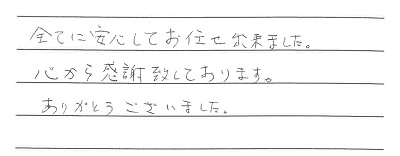 全てに安心してお任せ出来ました。
心から感謝致しております。
ありがとうございました。